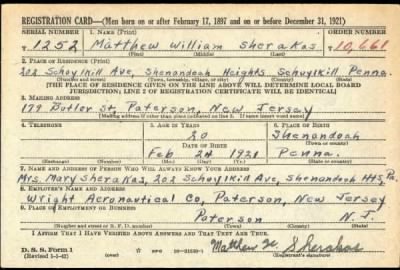 REGISTRATION CARD—(Men born on or after February 17, 1897 and on or before December 31, 1921)
SERIAL NUMBER 1. NAME (Print) ORDER NUMBER
1252 Matthew William Sherakas 10,661
(First) (Middle) (Last)
2. PLACE OF RESIDENCE (Print)
202 Schuylkill Ave, Shenandoah Heights Schuylkill Penna.
(Number and street) (Town, township, village, or city) (County) (State)
[THE PLACE OF RESIDENCE GIVEN ON THE LINE ABOVE WILL DETERMINE LOCAL BOARD
JURISDICTION; LINE 2 OF REGISTRATION CERTIFICATE WILL BE IDENTICAL]
3. MAILING ADDRESS
179 Butler St, Paterson, New Jersey
[Mailing address if other than place indicated on line 2. If same insert word same]
4. TELEPHONE 5. AGE IN YEARS 6. PLACE OF BIRTH
20 Shenandoah
DATE OF BIRTH (Town or county)
Feb 24 1921 Penna.
(Exchange) (Number) (Mo.) (Day) (Yr.) (State or country)
7. NAME AND ADDRESS OF PERSON WHO WILL ALWAYS KNOW YOUR ADDRESS
Mrs. Mary Sherakas, 202 Schuylkill Ave, Shenandoah Hts, Pa.
8. EMPLOYER'S NAME AND ADDRESS
Wright Aeronautical Co, Paterson, New Jersey
9. PLACE OF EMPLOYMENT OR BUSINESS
Paterson N.J.
(Number and street or R. F. D. number) (Town) (County) (State)
I AFFIRM THAT I HAVE VERIFIED ABOVE ANSWERS AND THAT THEY ARE TRUE.
D. S. S. Form 1
(Revised 1-1-42) (over) Matthew W. Sherakas
(Registrant's signature)